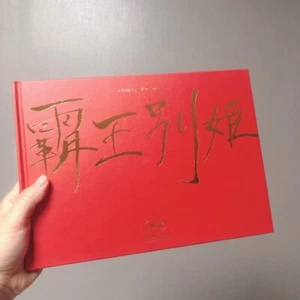 霸王别姬